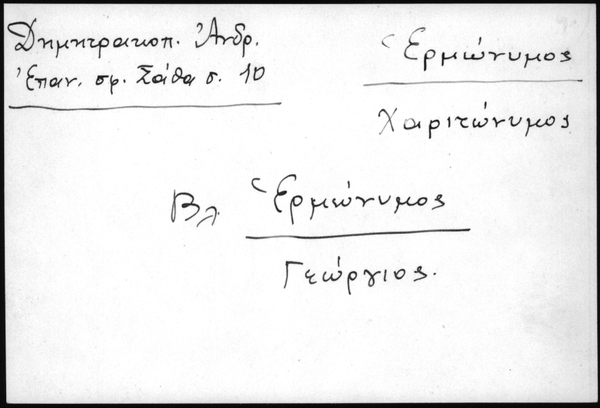 Δημητρακοπ. Ἀνδρ.
Ἐπαν. σφ. Σάθα σ. 10
Ἑρμώνυμος
Χαριτώνυμος
Βλ Ἑρμώνυμος
Γεώργιος.